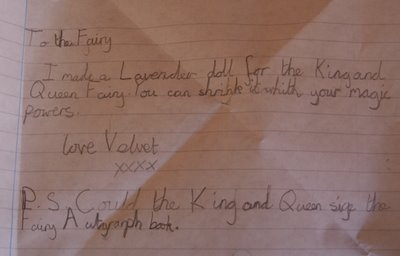 To the Fairy
I made a Lavender doll for the King and
Queen Fairy. You can shrink it whith your magic
Powers.
love Velvet
xxxx
P.S. Could the King and Queen sige the
Fairy Autgraph book.